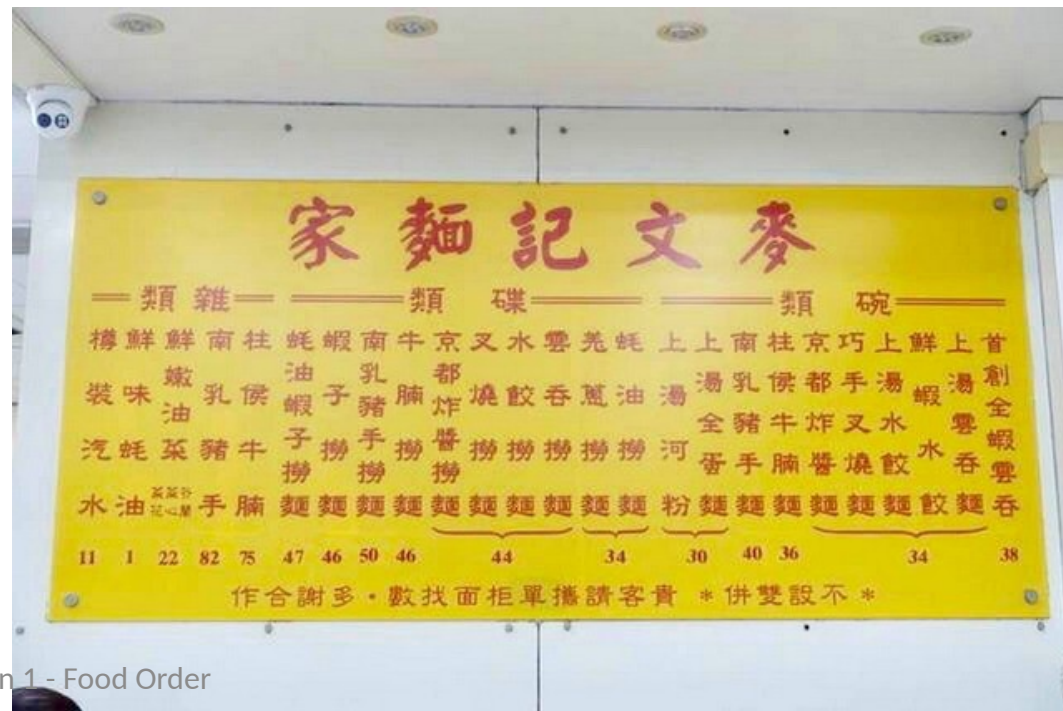 麥文記麵家
碗類
首創全蝦雲吞
38
上湯雲吞麵
鮮蝦水餃
上湯水餃麵
巧手叉燒麵
京都炸醬麵
34
柱侯牛腩麵
36
南乳豬手麵
40
上湯全蛋麵
上湯河粉
30
碟類
蚝油撈麵
羗蔥撈麵
34
雲吞撈麵
水餃撈麵
叉燒撈麵
京都炸醬撈麵
44
牛腩撈麵
46
南乳豬手撈麵
50
蝦子撈麵
46
蚝油蝦子撈麵
47
雜類
柱侯牛腩
75
南乳豬手
82
鮮嫩油菜
菜心
22
鮮味蚝油
1
樽裝汽水
11
*不設雙併* 貴客請攜單柜面找數・多謝合作
1 - Food Order